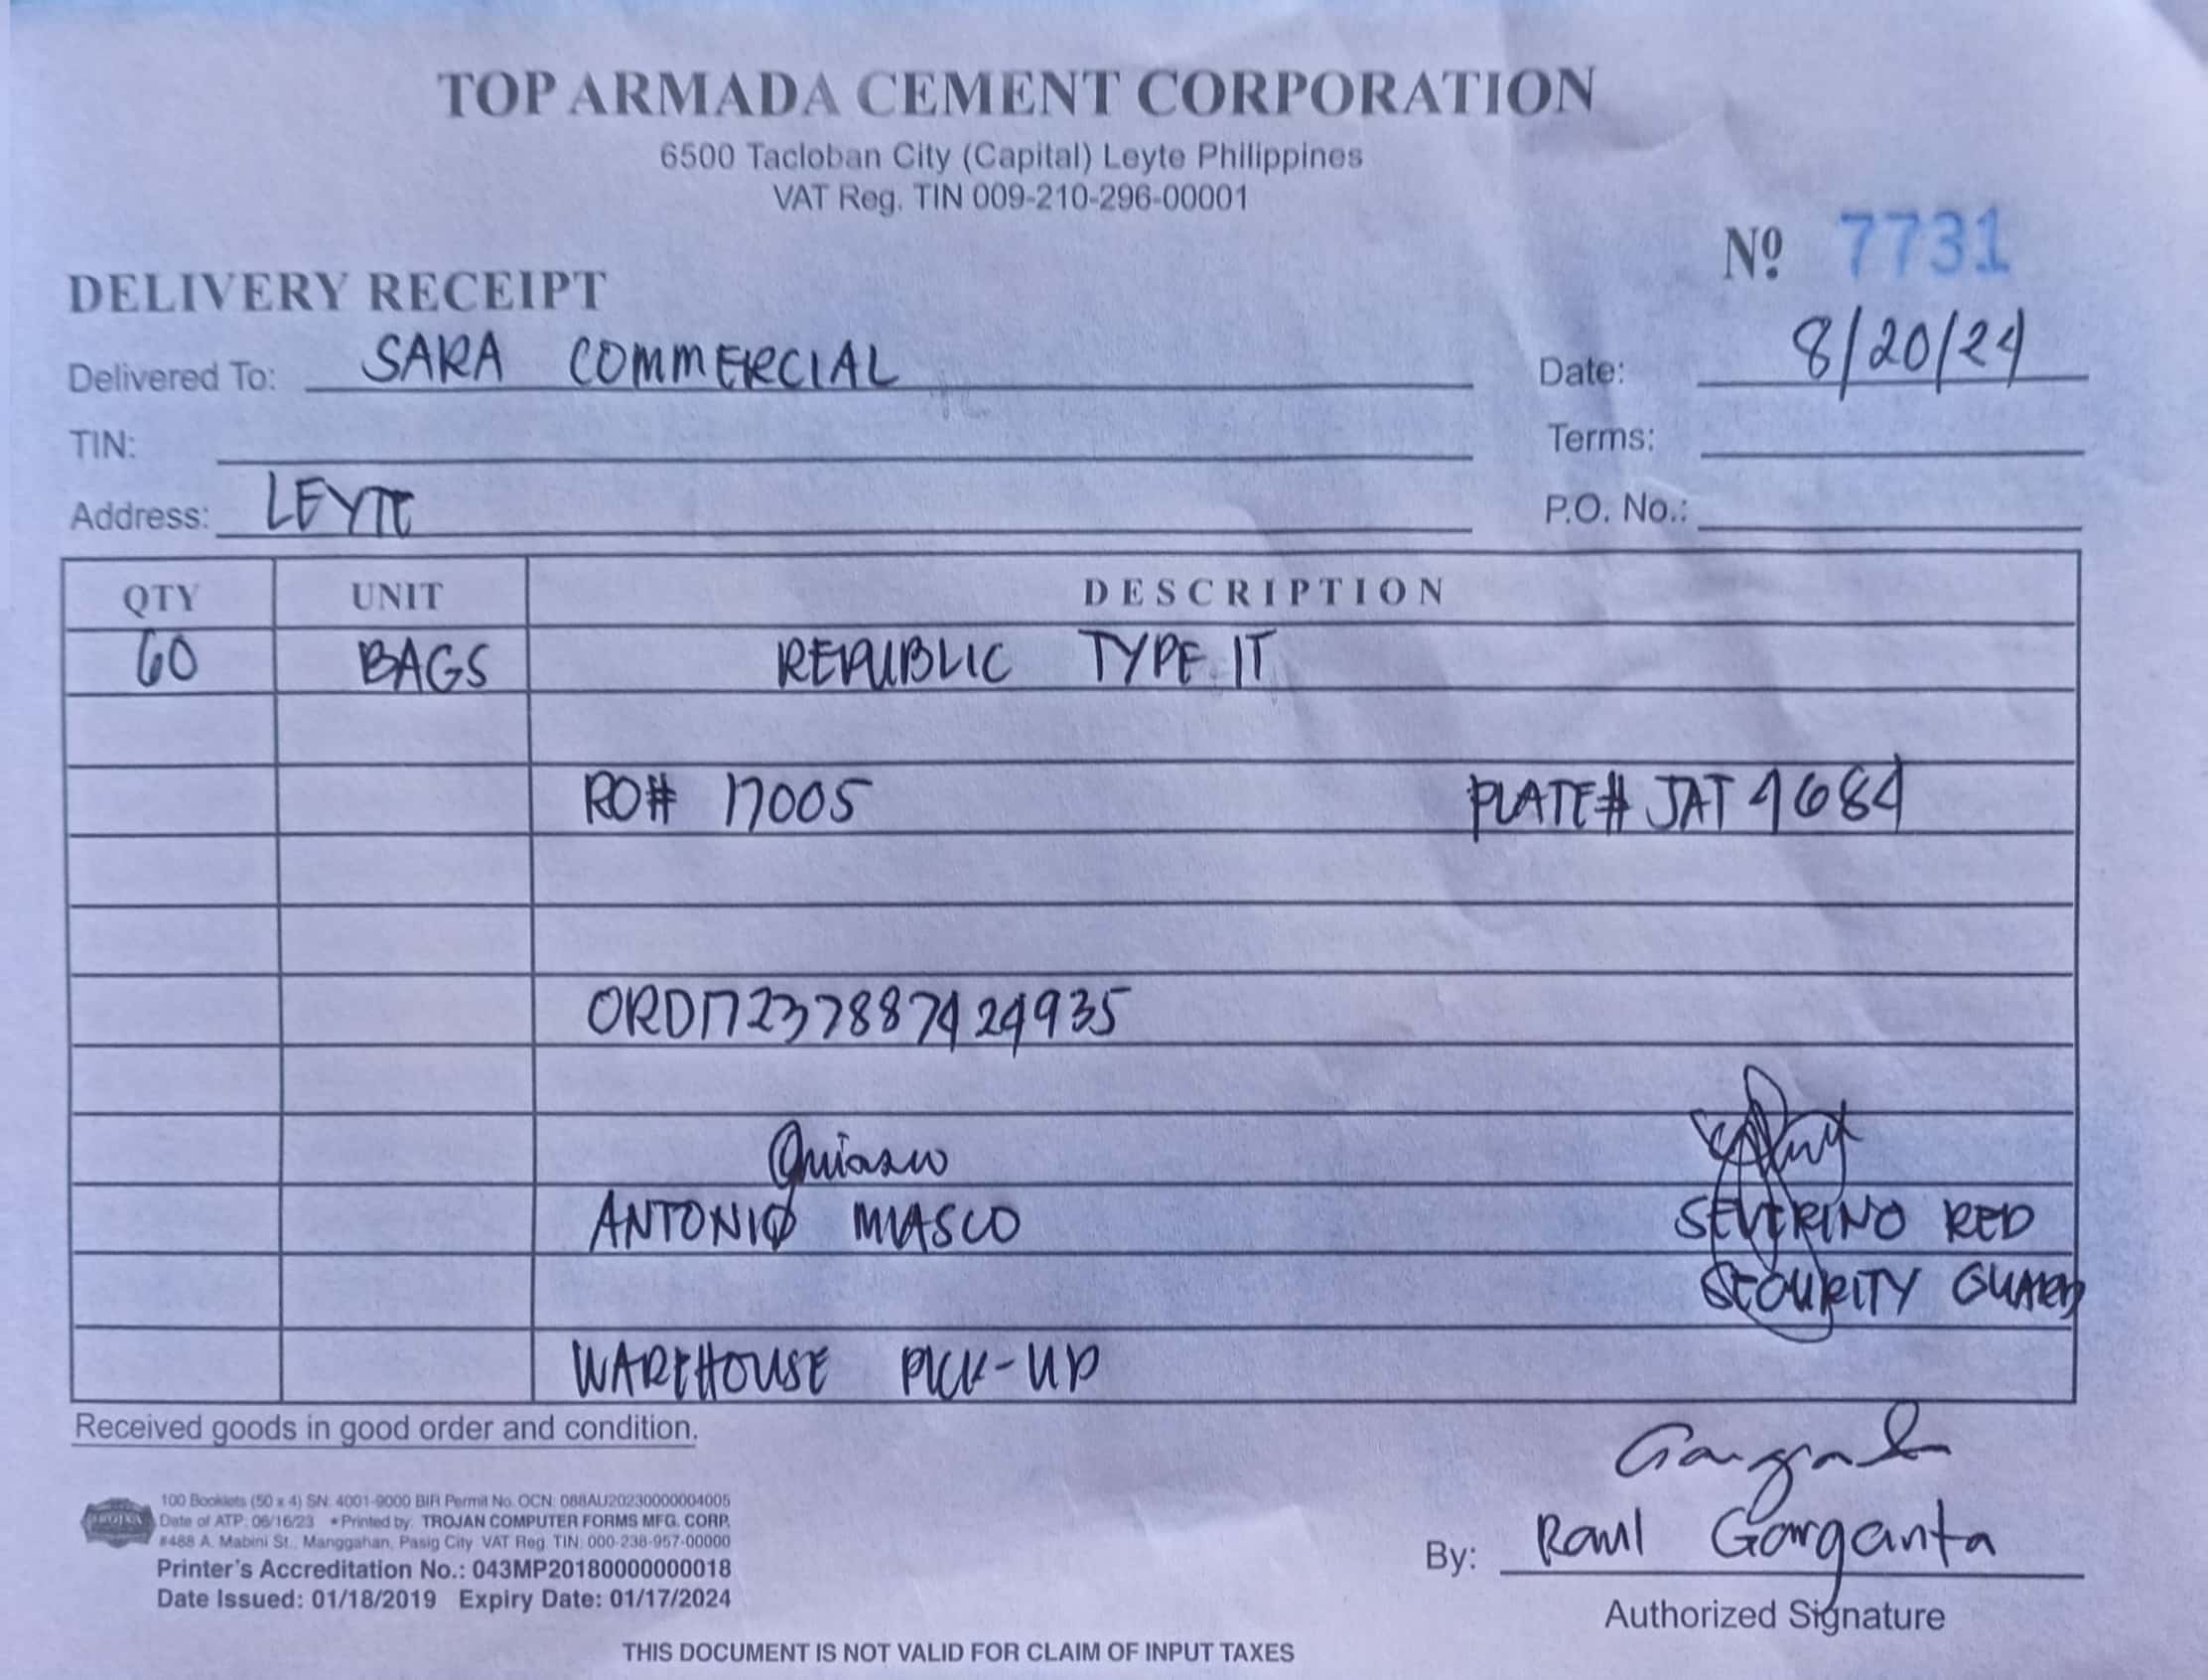 TOP ARMADA CEMENT CORPORATION
6500 Tacloban City (Capital) Leyte Philippines
VAT Reg. TIN 009-210-296-00001
Nº 7731
DELIVERY RECEIPT
Delivered To: SARA COMMERCIAL
Date: 8/20/24
TIN:
Terms:
Address: LEYTE
P.O. No.:
QTY UNIT DESCRIPTION
60 BAGS REPUBLIC TYPE 1T
RO# 17005 PLATE# JAT 4684
ORD17237887424935
ANTONIO MIASCO SEVERINO RED
SECURITY GUARD
WAREHOUSE PICK-UP
Received goods in good order and condition.
100 Booklets (50 x 4) SN: 4001-9000 BIR Permit No. OCN: 088AU20230000004005
Date of ATP: 06/16/23 • Printed by: TROJAN COMPUTER FORMS MFG. CORP.
#488 A. Mabini St., Manggahan, Pasig City VAT Reg. TIN: 000-238-957-00000
Printer's Accreditation No.: 043MP20180000000018
Date Issued: 01/18/2019 Expiry Date: 01/17/2024
By: Raul Garganta
Authorized Signature
THIS DOCUMENT IS NOT VALID FOR CLAIM OF INPUT TAXES